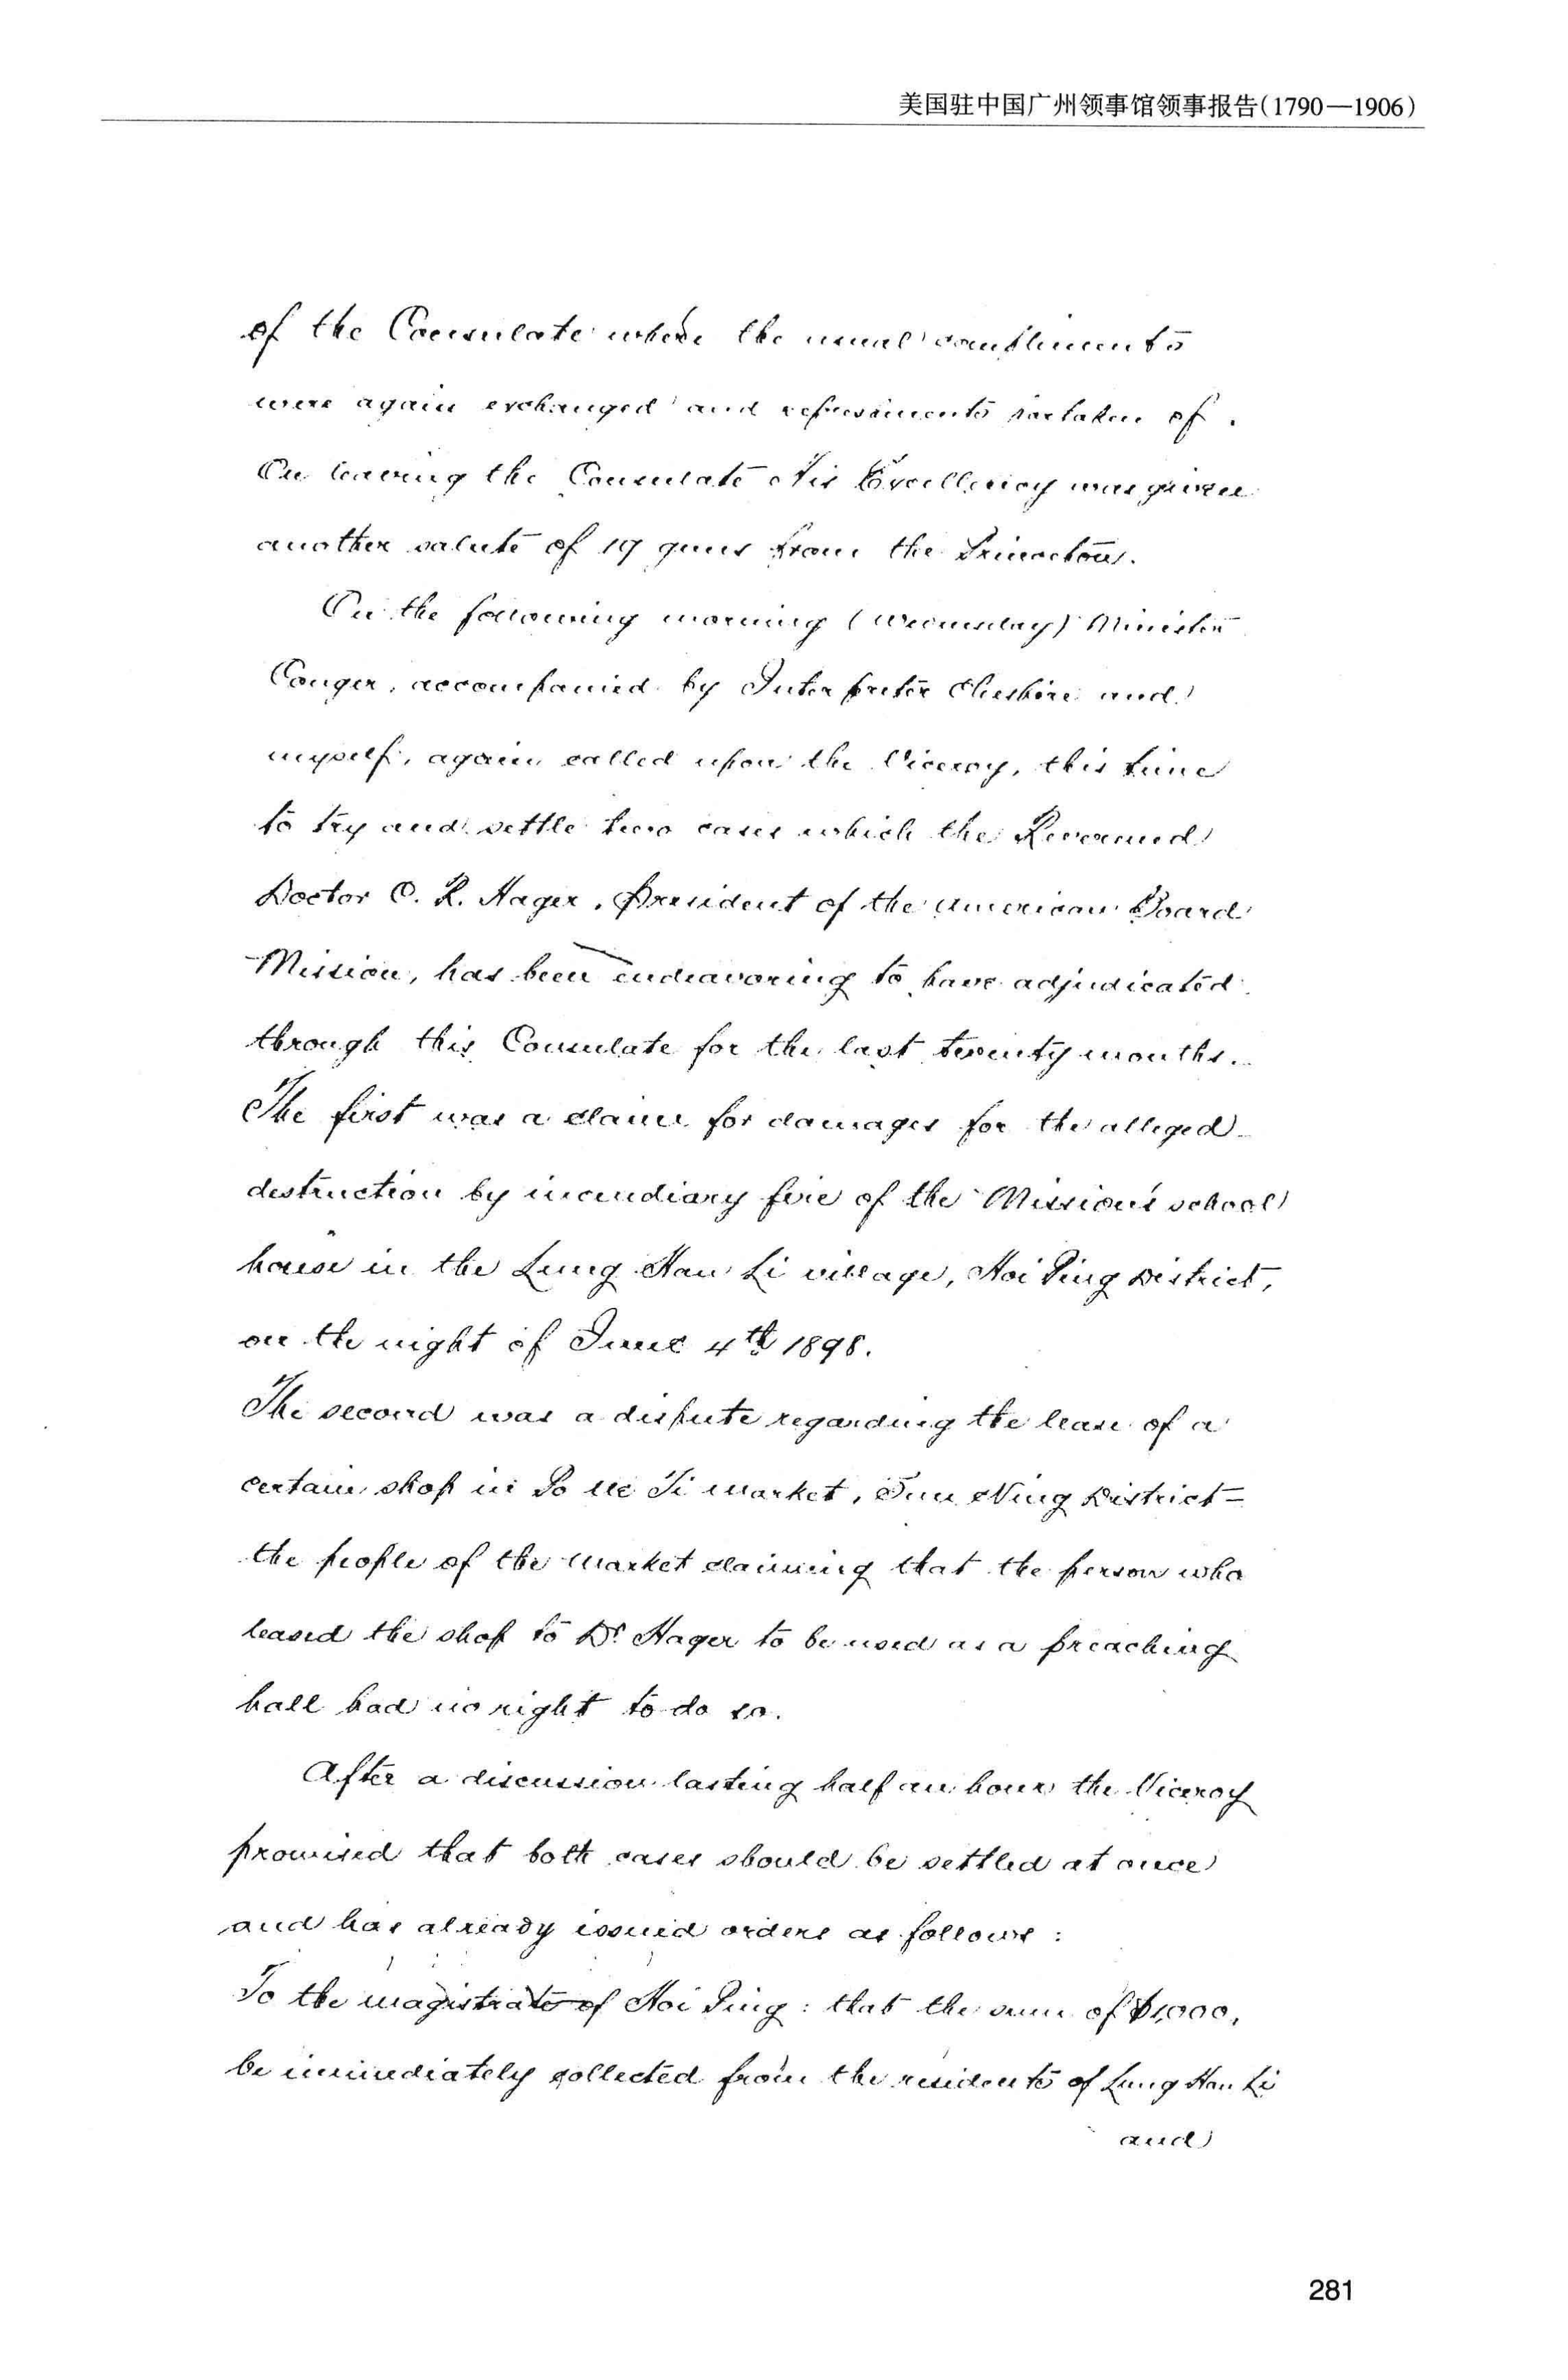 美国驻中国广州领事馆领事报告(1790—1906)
of the Consulate where the usual compliments
were again exchanged and refreshments partaken of.
On leaving the Consulate His Excellency was given
another salute of 19 guns from the Princeton.
On the following morning (Wednesday) Minister
Conger, accompanied by Interpreter Cheshire and
myself, again called upon the Viceroy, this time
to try and settle two cases which the Reverend
Doctor C. R. Hager, President of the American Board
Mission, has been endeavoring to have adjudicated
through this Consulate for the last twenty months.
The first was a claim for damages for the alleged
destruction by incendiary fire of the Mission's school
house in the Lung Han Li village, Hoi Ping District,
on the night of June 4th 1898.
The second was a dispute regarding the lease of a
certain shop in Ti market, Sun Ning District—
the people of the market claiming that the person who
leased the shop to Dr. Hager to be used as a preaching
hall had no right to do so.
After a discussion lasting half an hour the Viceroy
promised that both cases should be settled at once
and has already issued orders as follows:
To the magistrate of Hoi Ping: that the sum of $1,000,
be immediately collected from the residents of Lung Han Li
and
281